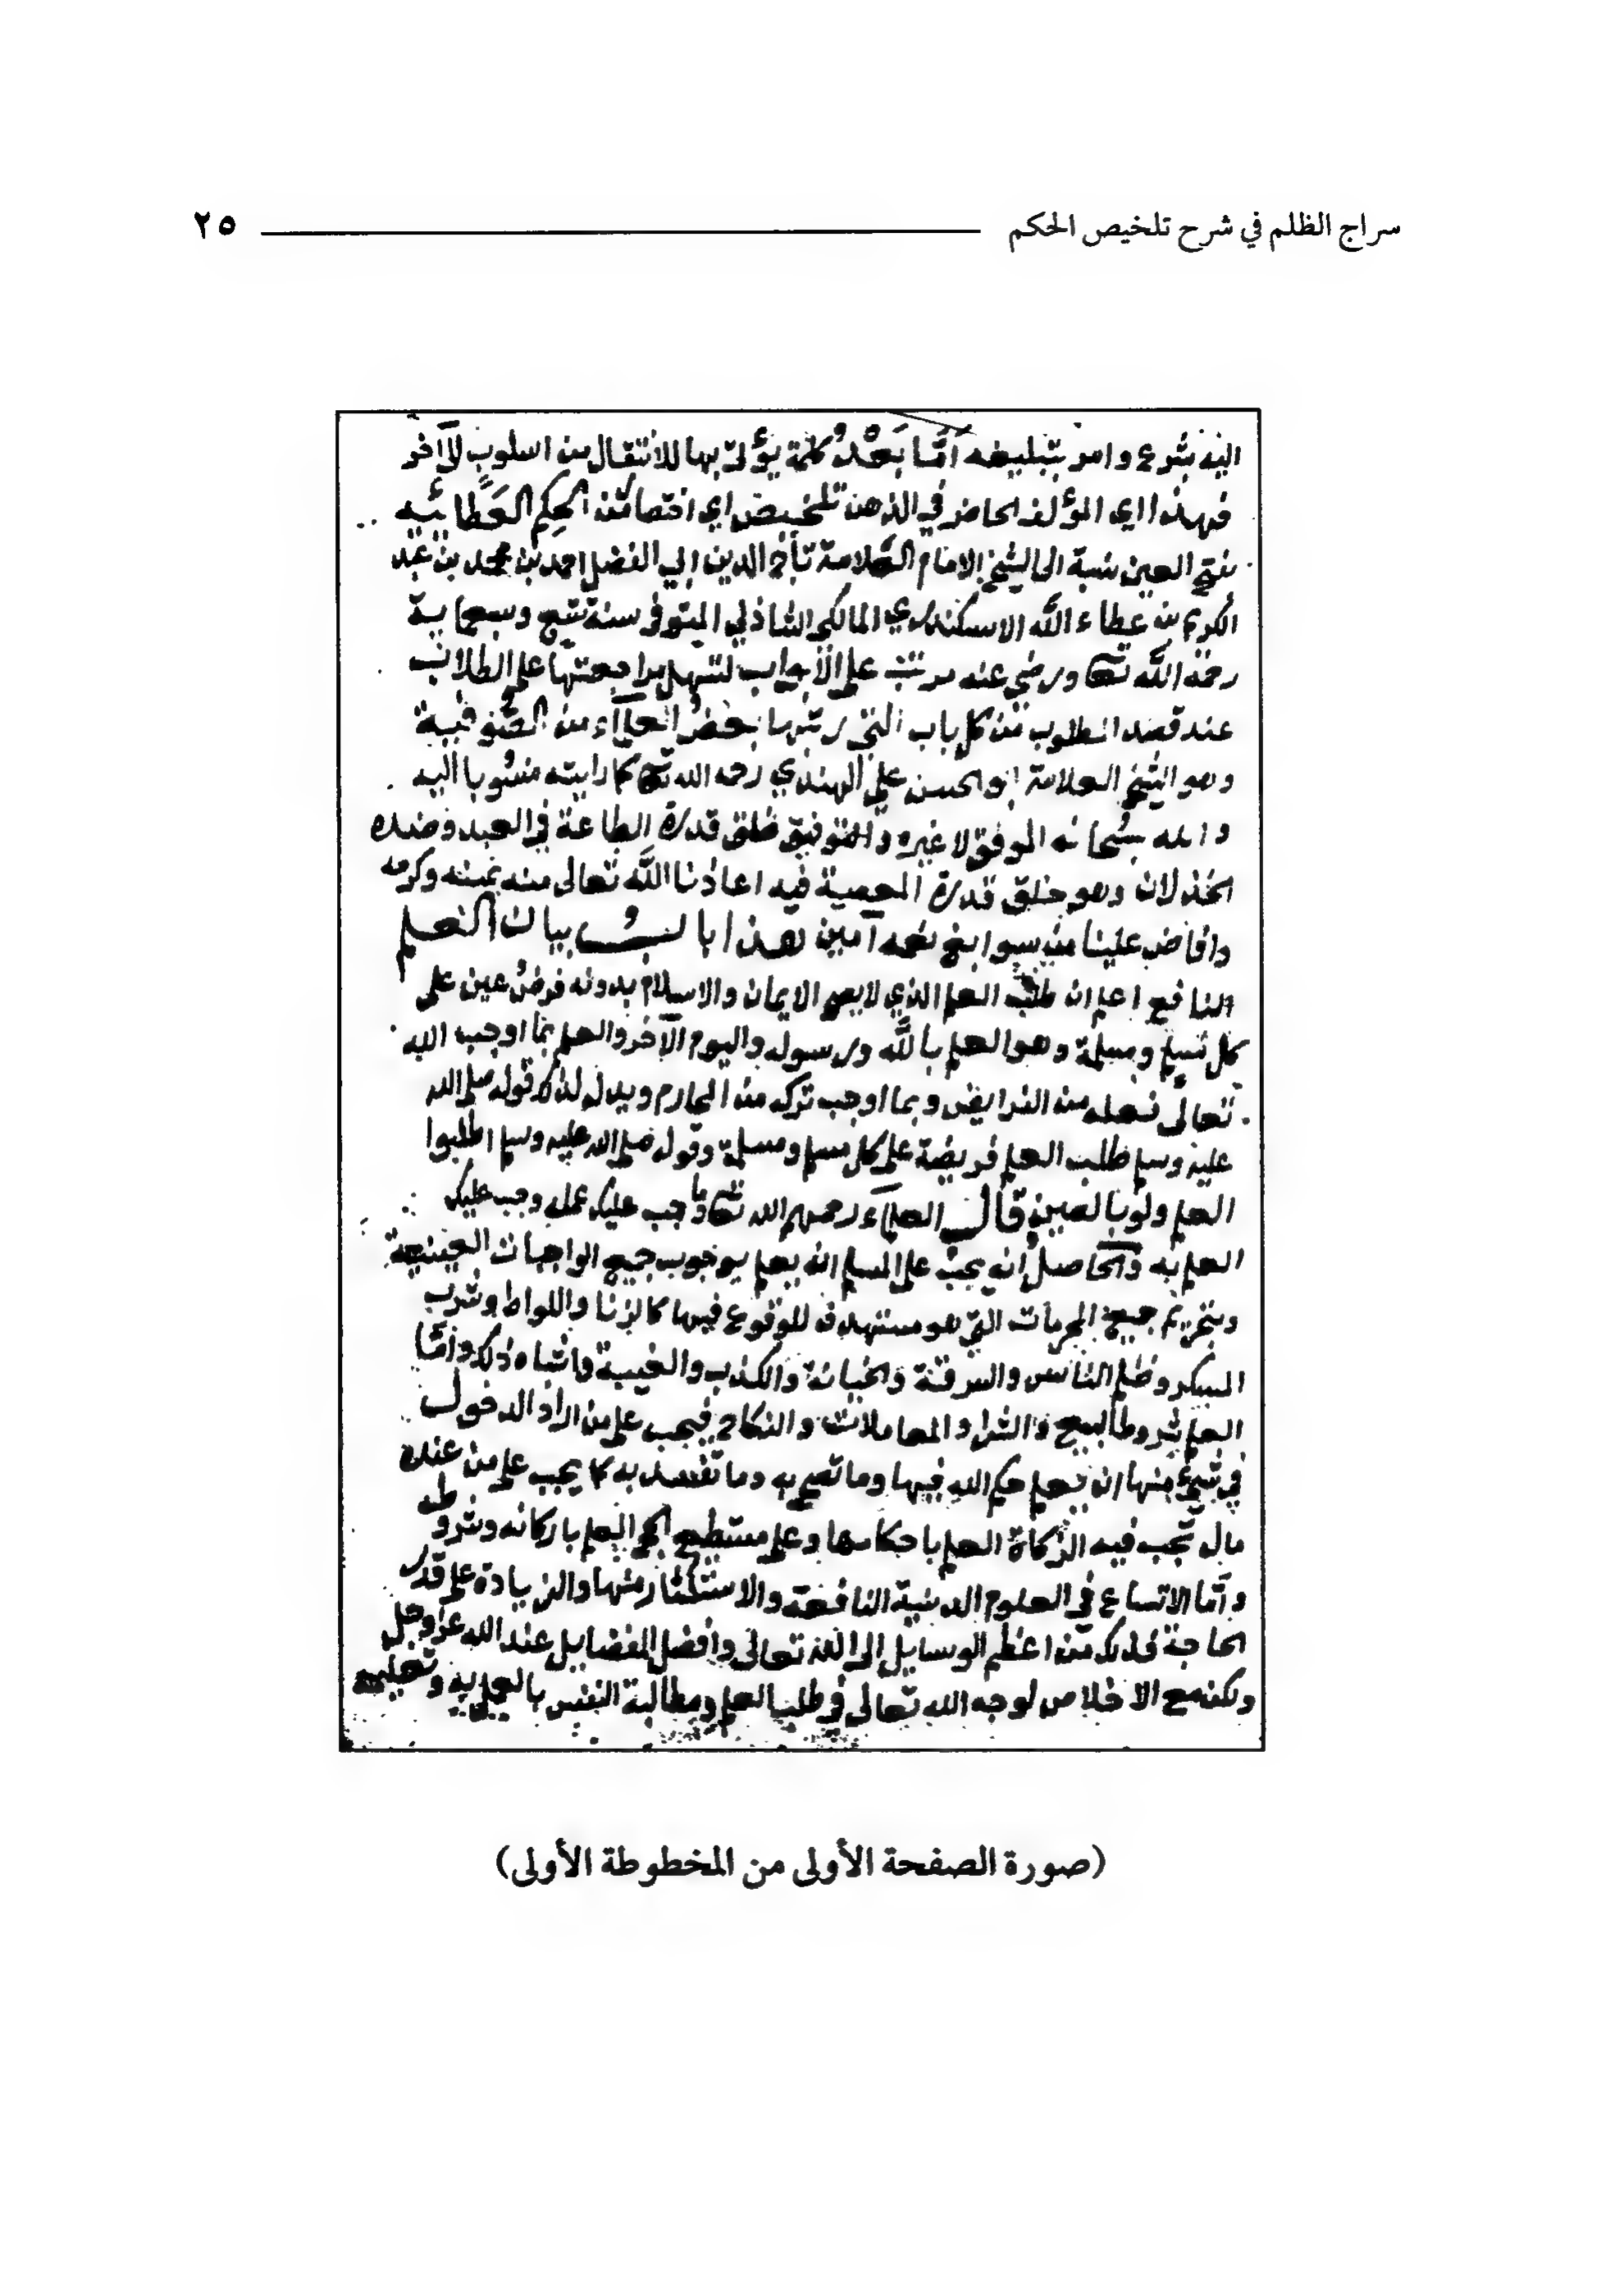 سراج الظلم في شرح تلخيص الحكم ٢٥
اليه بشرع وامر بتبليغه أَمَّا بَعْدُ كلمة يؤتى بها للانتقال من اسلوب لآخر
فهذا اي المؤلف الحاضر في الذهن تلخيص اي اختصار من الحِكَم العَطائيه
بفتح العين نسبة الى الشيخ الامام العلامة تاج الدين ابي الفضل احمد بن محمد بن عبد
الكريم بن عطاء الله الاسكندري المالكي الشاذلي المتوفى سنة تسع وسبعماية
رحمه الله تعا ورضي عنه مرتب على الأبواب لتسهل مراجعتها على الطلاب
عند قصد المطلوب من كل باب التي رتبها بعض العلماء من الصوفية
وهو الشيخ العلامة ابو الحسن علي الهندي رحمه الله تع كما رايته منسوبا اليه
والله سبحانه الموفق لا غيره والتوفيق خلق قدرة الطاعة في العبد وضده
الخذلان وهو خلق قدرة المعصية فيه اعاذنا الله تعالى منه بمنه وكرمه
وافاض علينا من سوابغ نعمه آمين هذا باب بيان العلم
النافع اعلم ان طلب العلم الذي لا يصح الايمان والاسلام بدونه فرض عين على
كل مسلم ومسلمة وهو العلم بالله ورسوله واليوم الآخر والعلم بما اوجب الله
تعالى فعله من الفرايض وبما اوجب تركه من المحارم ويدل لذلك قوله صلى الله
عليه وسلم طلب العلم فريضة على كل مسلم ومسلمة وقوله صلى الله عليه وسلم اطلبوا
العلم ولو بالصين قال العلماء رحمهم الله تعا وما وجب عليك عمله وجب عليك
العلم به والحاصل أنه يجب على المسلم ان يعلم بوجوب جميع الواجبات العينية
وبتحريم جميع المحرمات التي هو مستهدف للوقوع فيها كالزنا واللواط وشرب
المسكر وظلم الناس والسرقة والخيانة والكذب والغيبة واشباه ذلك وأمّا
العلم بشروط البيع والشراء والمعاملات والنكاح فيجب على من اراد الدخول
في شيء منها ان يعلم حكم الله فيها وما تصح به وما تفسد به كما يجب على من عنده
مال تجب فيه الزكاة العلم باحكامها وعلى مستطيع الحج العلم باركانه وشروطه
وأمّا الاتساع في العلوم الدينية النافعة والاستكثار منها والزيادة على قدر
الحاجة فذلك من اعظم الوسايل الى الله تعالى وافضل الفضايل عند الله عز وجل
ولكن مع الاخلاص لوجه الله تعالى في طلب العلم ومطالبة النفس بالعمل به وتعليمه
(صورة الصفحة الأولى من المخطوطة الأولى)